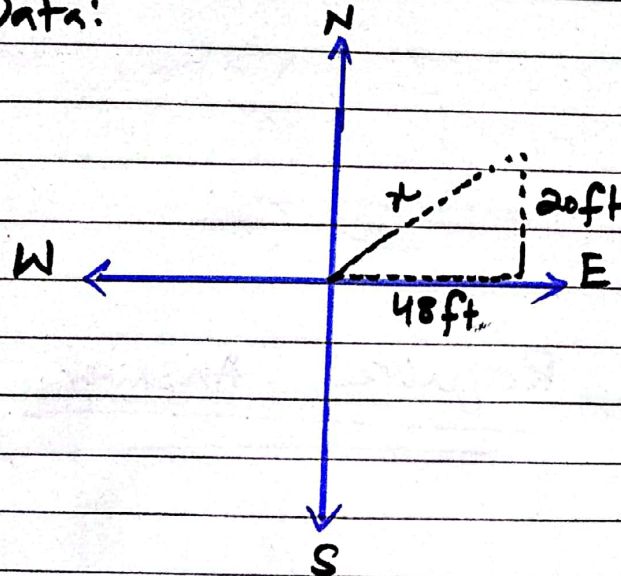 Data:
N
x
20ft
W
E
48ft
S